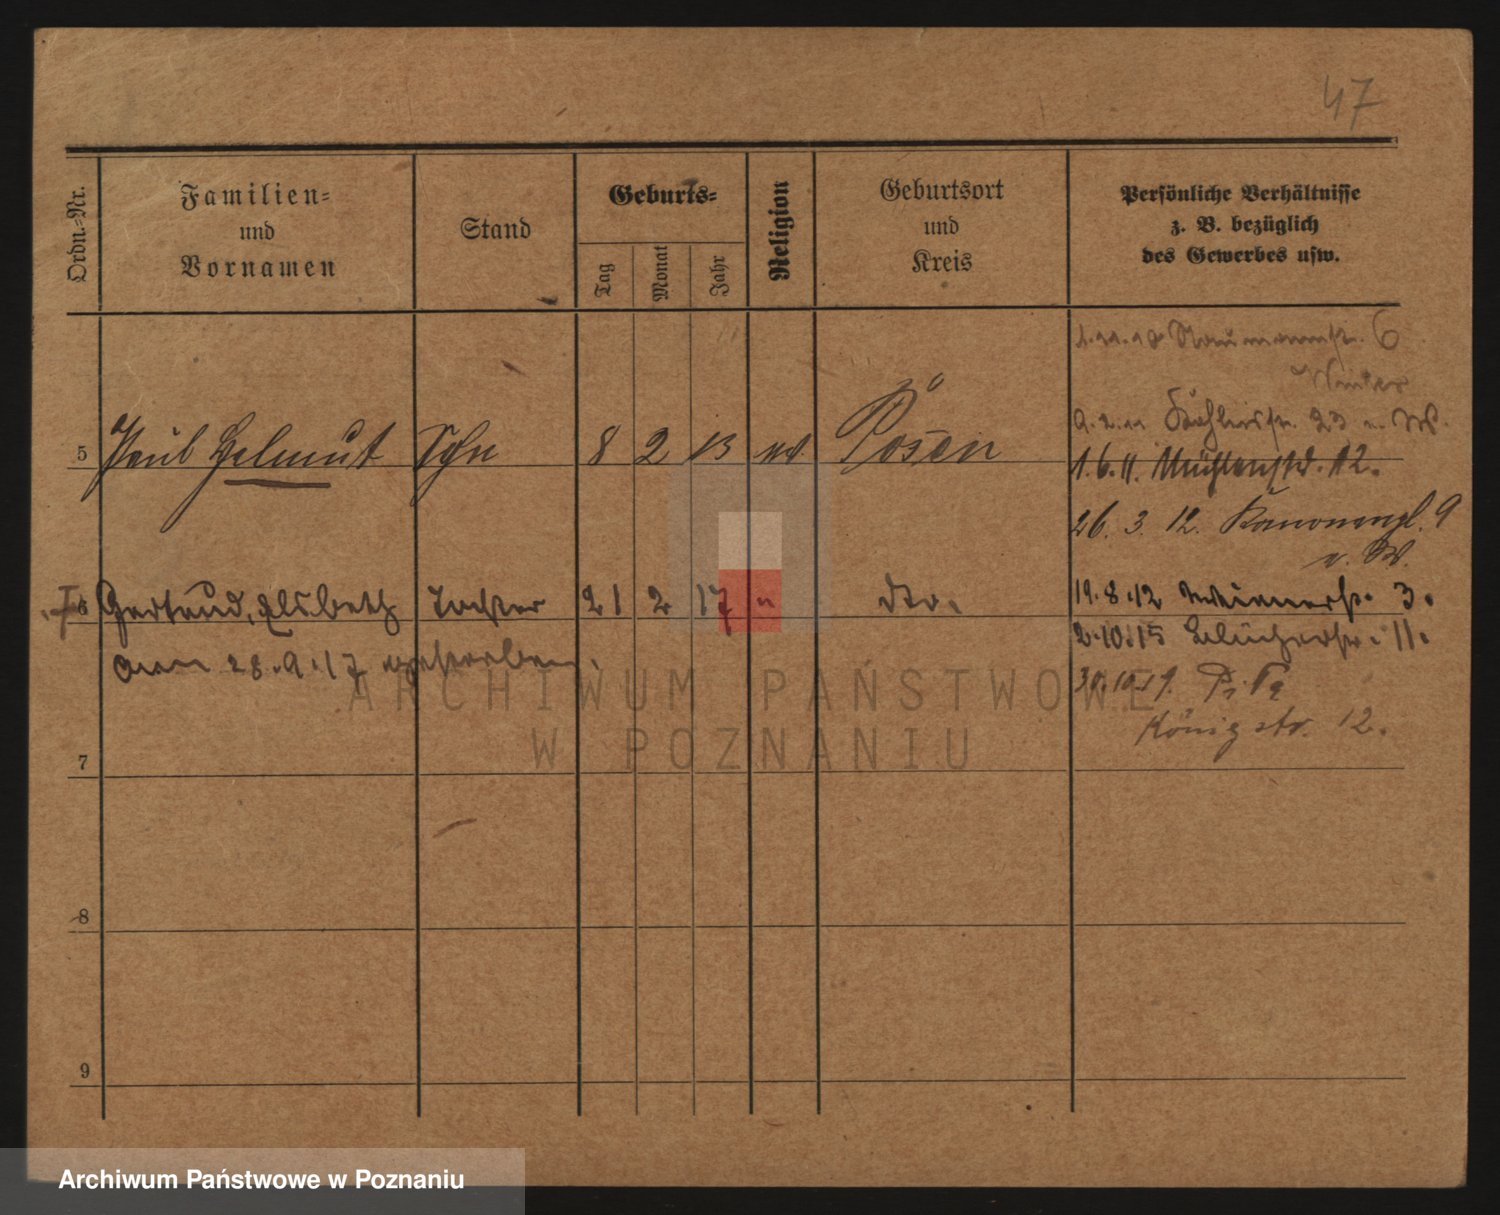 47
Ordn.-Nr.
Familien-
und
Vornamen
Stand
Geburts-
Tag
Monat
Jahr
Religion
Geburtsort
und
Kreis
Persönliche Verhältnisse
z. B. bezüglich
des Gewerbes usw.
1.11.10 Naumannstr. 6
Winter
5 Paul Helmut Sohn 8 2 13 ev Posen
9.2.11 23 b. W.
1.6.11. Mühlenstr. 12.
26. 3. 12. Kanonenpl. 9
b. W.
6 Gertrud, Elsbeth Tochter 21 2 17 " dto.
19.8.12 3.
am 28.9.17 gestorben.
2.10.15 Blücherstr. 11.
30.10.19.
Königstr. 12.
7
8
9
ARCHIWUM PAŃSTWOWE
W POZNANIU
Archiwum Państwowe w Poznaniu